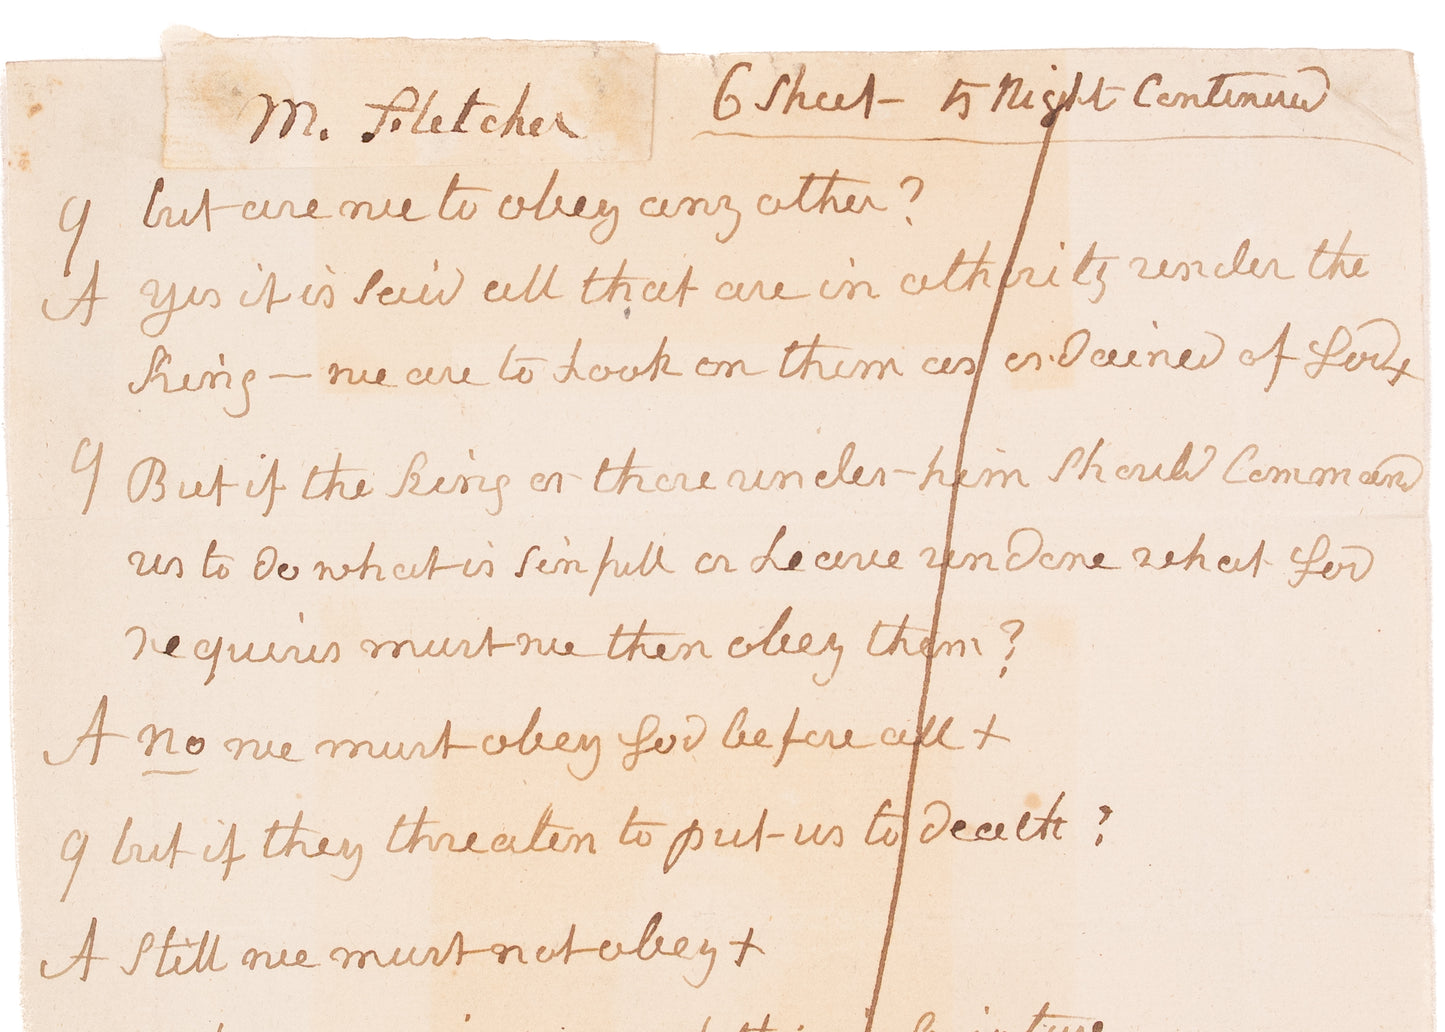 M. Fletcher
6 Sheet - 5 Night Continued
q but are we to obey any other?
A yes it is Said all that are in athority under the
King — we are to Look on them as ordained of God +
q But if the King or those under-him Should Command
us to do what is Sinfull or Leave undone what God
requires must we then obey them?
A no we must obey God before all +
q but if they threaten to put us to death?
A Still we must not obey +